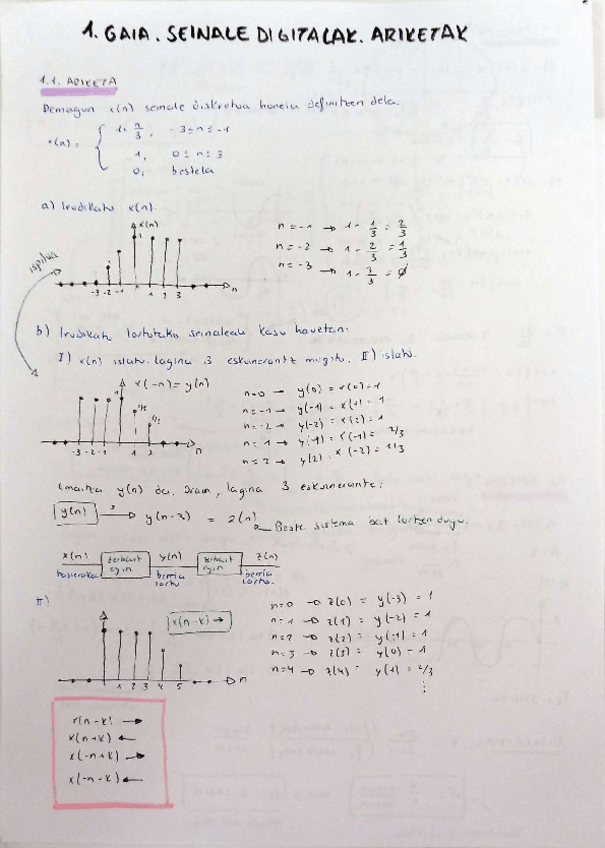 1. GAIA. SEINALE DIGITALAK. ARIKETAK
1.1. ARIKETA
Demagun x(n) seinale diskretua honela definitzen dela:
x(n) = { 1+ n/3, -3≤n≤-1
1, 0≤n≤3
0, bestela
a) Irudikatu x(n).
x(n)
1
-3 -2 -1 1 2 3 n
n=-1 → 1- 1/3 = 2/3
n=-2 → 1- 2/3 = 1/3
n=-3 → 1- 3/3 = 0
ispilua
b) Irudikatu lortutako seinaleak kasu hauetan:
I) x(n) islatu, lagina 3 eskuinerantz mugitu. II) islatu.
x(-n)=y(n)
1
-3 -2 -1 1 2 n
n=0 → y(0) = x(0)=1
n=-1 → y(-1) = x(1) = 1
n=-2 → y(-2) = x(2) = 1
n=1 → y(1) = x(-1) = 2/3
n=2 → y(2) = x(-2) = 1/3
Emaitza y(n) da. Orain, lagina 3 eskuinerantz:
y(n) → y(n-3) = z(n)
Beste sistema bat lortzen dugu.
x(n) zerbait egin y(n) zerbait egin z(n)
hasierakoa berria lortu berria lortu
II)
x(n-k) →
1 2 3 4 5 n
n=0 → z(0) = y(-3) = 1
n=1 → z(1) = y(-2) = 1
n=2 → z(2) = y(-1) = 1
n=3 → z(3) = y(0) = 1
n=4 → z(4) = y(1) = 2/3
⋮
x(n-k) →
x(n+k) ←
x(-n+k) →
x(-n-k) ←